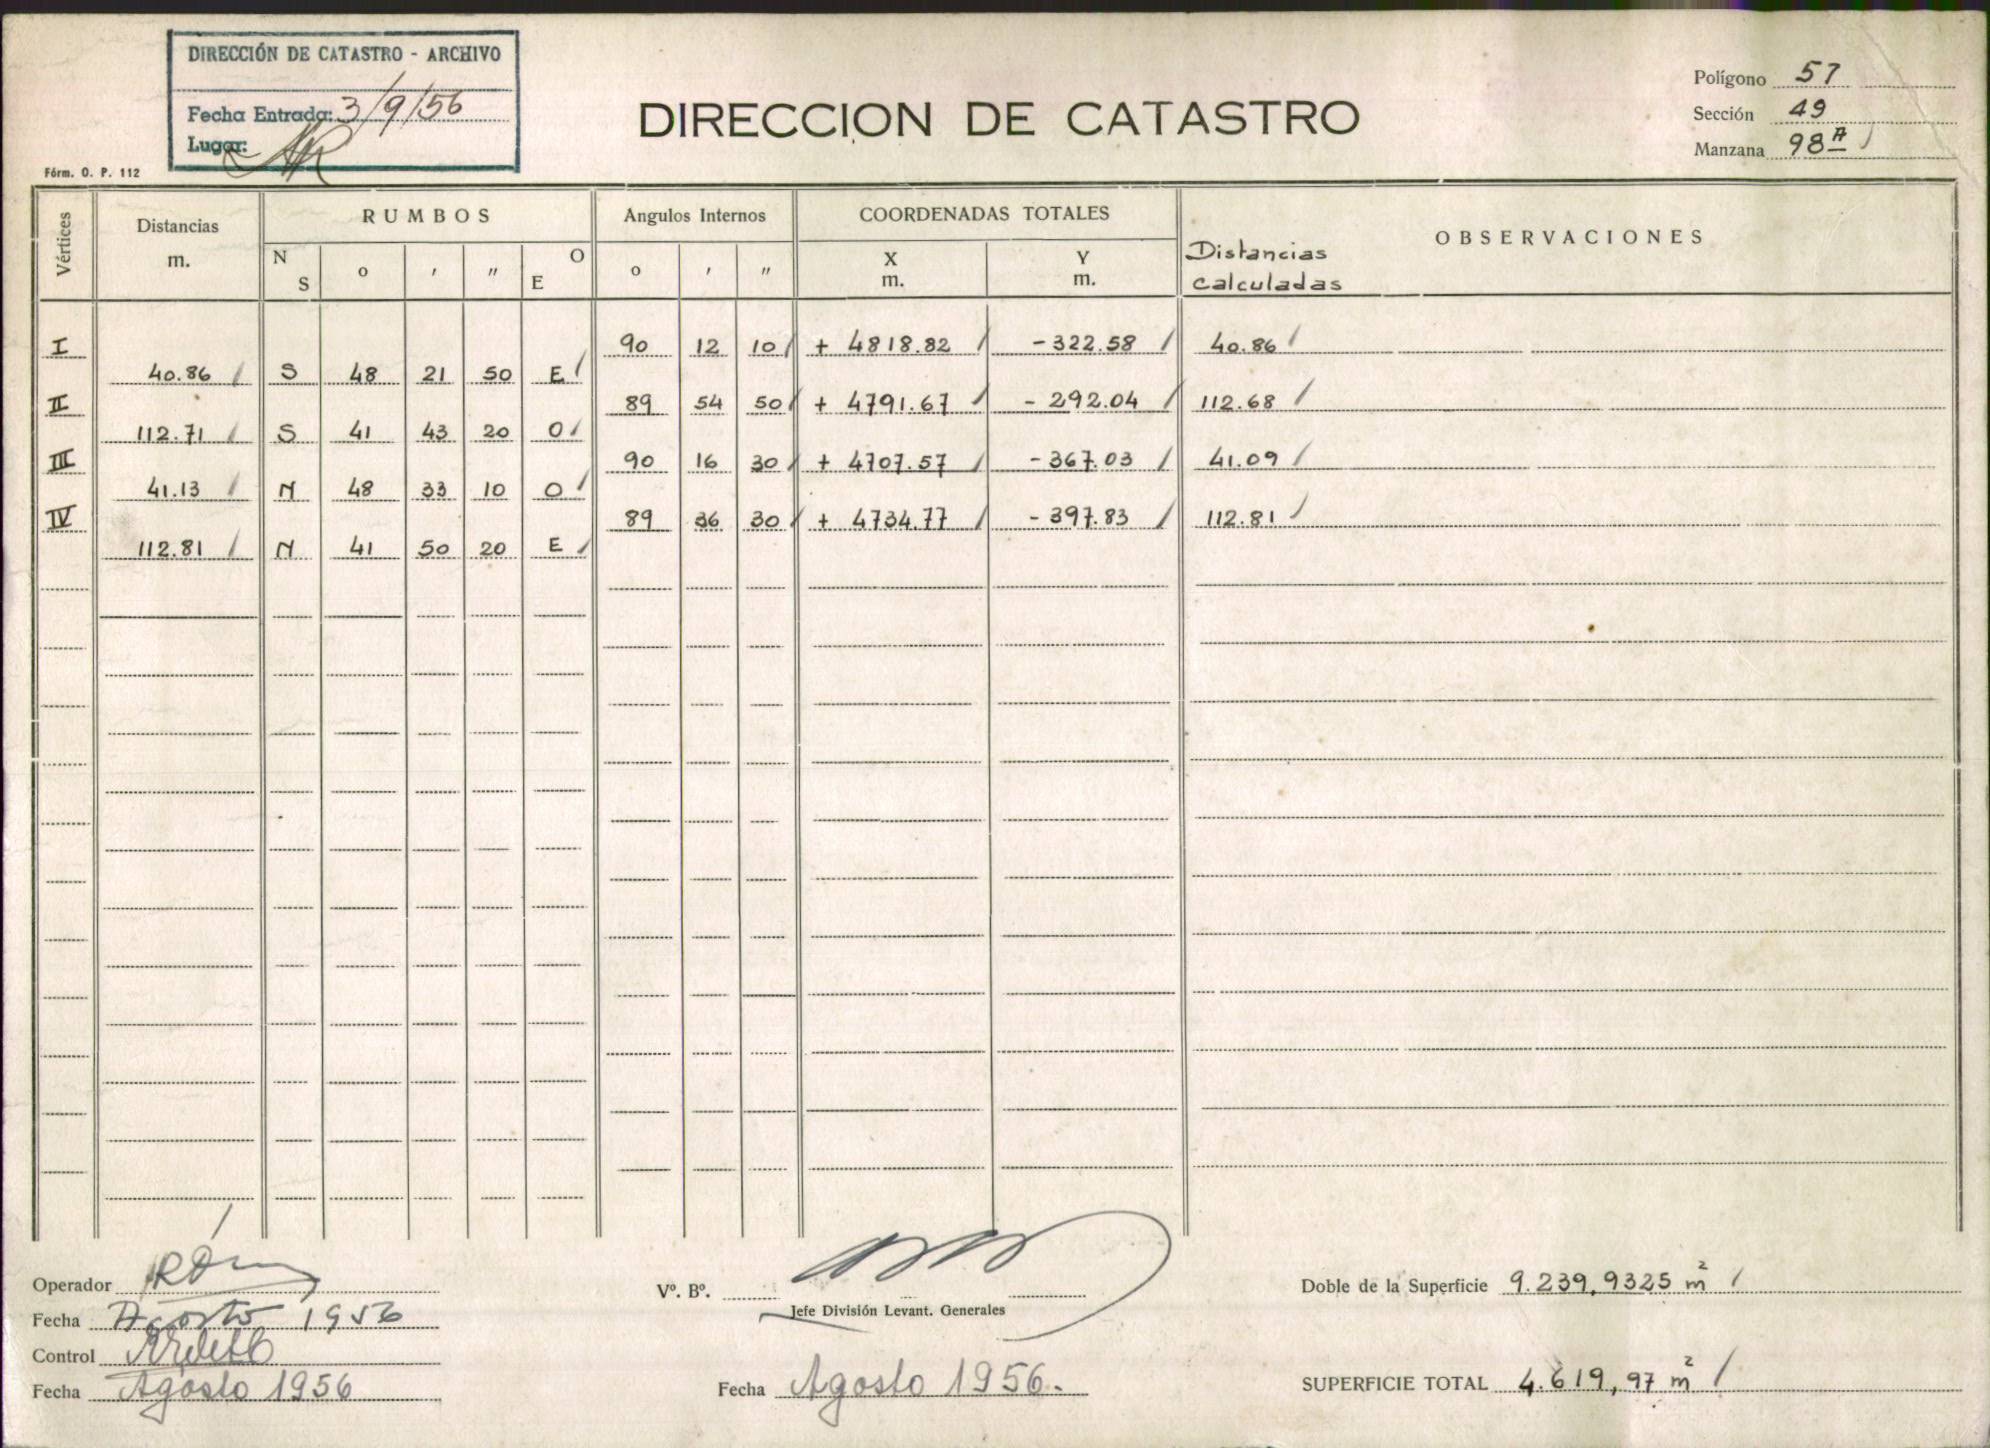 DIRECCIÓN DE CATASTRO - ARCHIVO
Fecha Entrada: 3/9/56
Lugar:
Fórm. O. P. 112
DIRECCION DE CATASTRO
Polígono 57
Sección 49
Manzana 98 A
Vértices Distancias m. RUMBOS Angulos Internos COORDENADAS TOTALES OBSERVACIONES
N S o ′ ″ O E o ′ ″ X m. Y m. Distancias calculadas
I 90 12 10 + 4818.82 - 322.58 40.86
40.86 S 48 21 50 E
II 89 54 50 + 4791.67 - 292.04 112.68
112.71 S 41 43 20 O
III 90 16 30 + 4707.57 - 367.03 41.09
41.13 N 48 33 10 O
IV 89 36 30 + 4734.77 - 397.83 112.81
112.81 N 41 50 20 E
Operador
Fecha Agosto 1956
Control
Fecha Agosto 1956
Vº. Bº.
Jefe División Levant. Generales
Fecha Agosto 1956.
Doble de la Superficie 9.239,9325 m²
SUPERFICIE TOTAL 4.619,97 m²